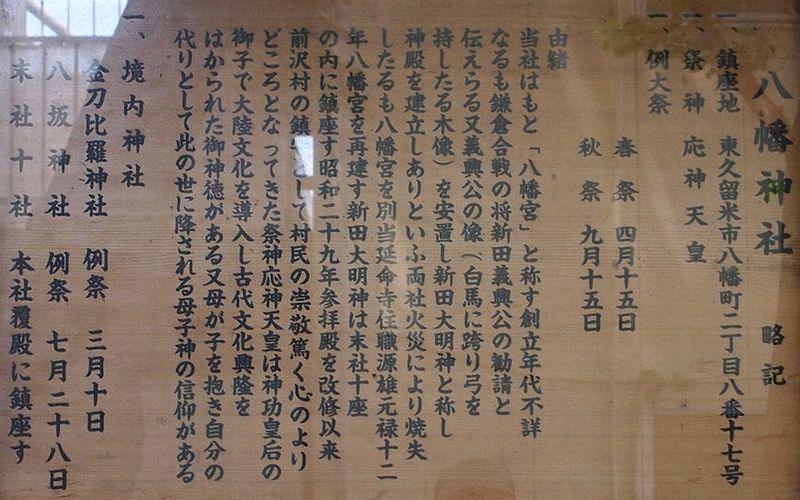 八幡神社 略記
一、鎮座地 東久留米市八幡町二丁目八番十七号
一、祭神 応神天皇
一、例大祭
春祭 四月十五日
秋祭 九月十五日
由緒
当社はもと「八幡宮」と称す創立年代不詳
なるも鎌倉合戦の将新田義興公の勧請と
伝えらる又義興公の像(白馬に跨り弓を
持したる木像)を安置し新田大明神と称し
神殿を建立しありといふ両社火災により焼失
したるも八幡宮を別当延命寺住職源雄元禄十二
年八幡宮を再建す新田大明神は末社十座
の内に鎮座す昭和二十九年参拝殿を改修以来
前沢村の鎮として村民の崇敬篤く心のより
どころとなってきた祭神応神天皇は神功皇后の
御子で大陸文化を導入し古代文化興隆を
はかられた御神徳がある又母が子を抱き自分の
代りとして此の世に降される母子神の信仰がある
一、境内神社
金刀比羅神社 例祭 三月十日
八坂神社 例祭 七月二十八日
末社十社 本社覆殿に鎮座す